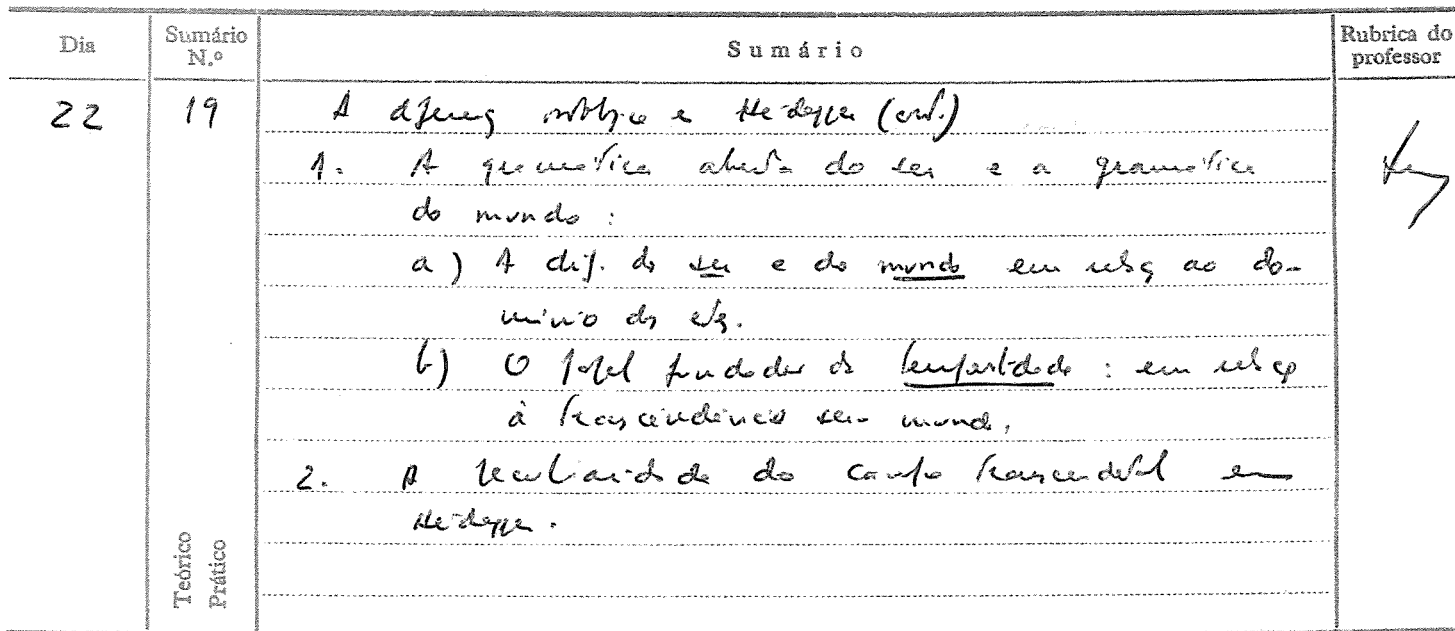 Dia
Sumário N.º
Sumário
Rubrica do professor
22
19
A em Heidegger (cont.)
1. A gramática aberta do ser e a gramática
do mundo :
a) A dif. do ser e do mundo em relaç ao do-
mínio do
b) O papel fundador da temporalidade : em relaç
à transcendência ser- mundo.
2. A peculiaridade do campo transcendental em
Heidegger.
Teórico
Prático